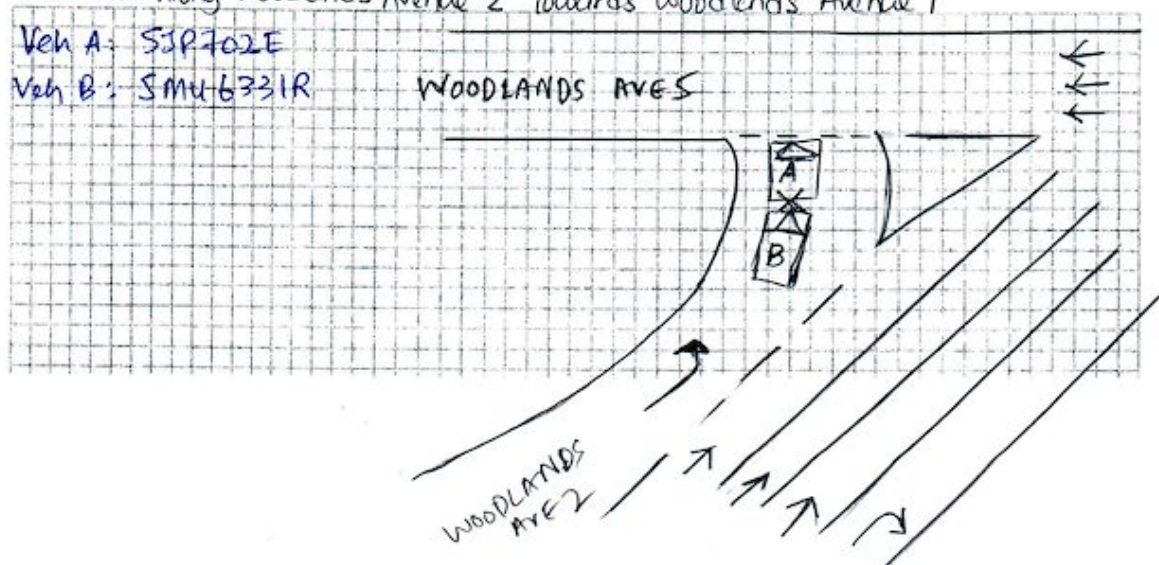 Along Woodlands Avenue 2 towards Woodlands Avenue 1
Veh A: SJP702E
Veh B: SMU6331R
WOODLANDS AVE 5
A
B
WOODLANDS
AVE 2